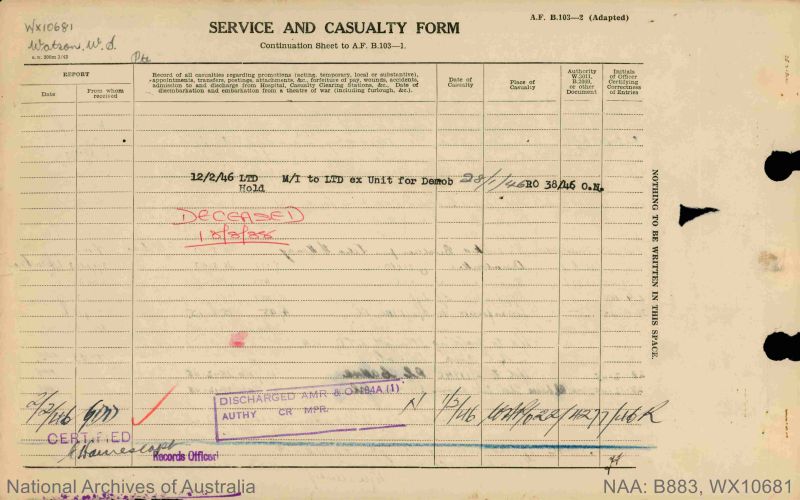 A.F. B.103—2 (Adapted)
WX10681
SERVICE AND CASUALTY FORM
Watson, W. S.
Continuation Sheet to A.F. B.103—1.
Pte
REPORT
Date
From whom received
Record of all casualties regarding promotions (acting, temporary, local or substantive), appointments, transfers, postings, attachments, &c., forfeiture of pay, wounds, accidents, admission to and discharge from Hospital, Casualty Clearing Stations, &c. Date of disembarkation and embarkation from a theatre of war (including furlough, &c.).
Date of Casualty
Place of Casualty
Authority W.3011, B.2069, or other Document
Initials of Officer Certifying Correctness of Entries
12/2/46 LTD Hold M/I to LTD ex Unit for Demob 28/1/46 RO 38/46 O.N.
DECEASED
NOTHING TO BE WRITTEN IN THIS SPACE.
DISCHARGED AMR & O 184A (1)
AUTHY CR MPR.
CERTIFIED
Records Officer
National Archives of Australia
NAA: B883, WX10681